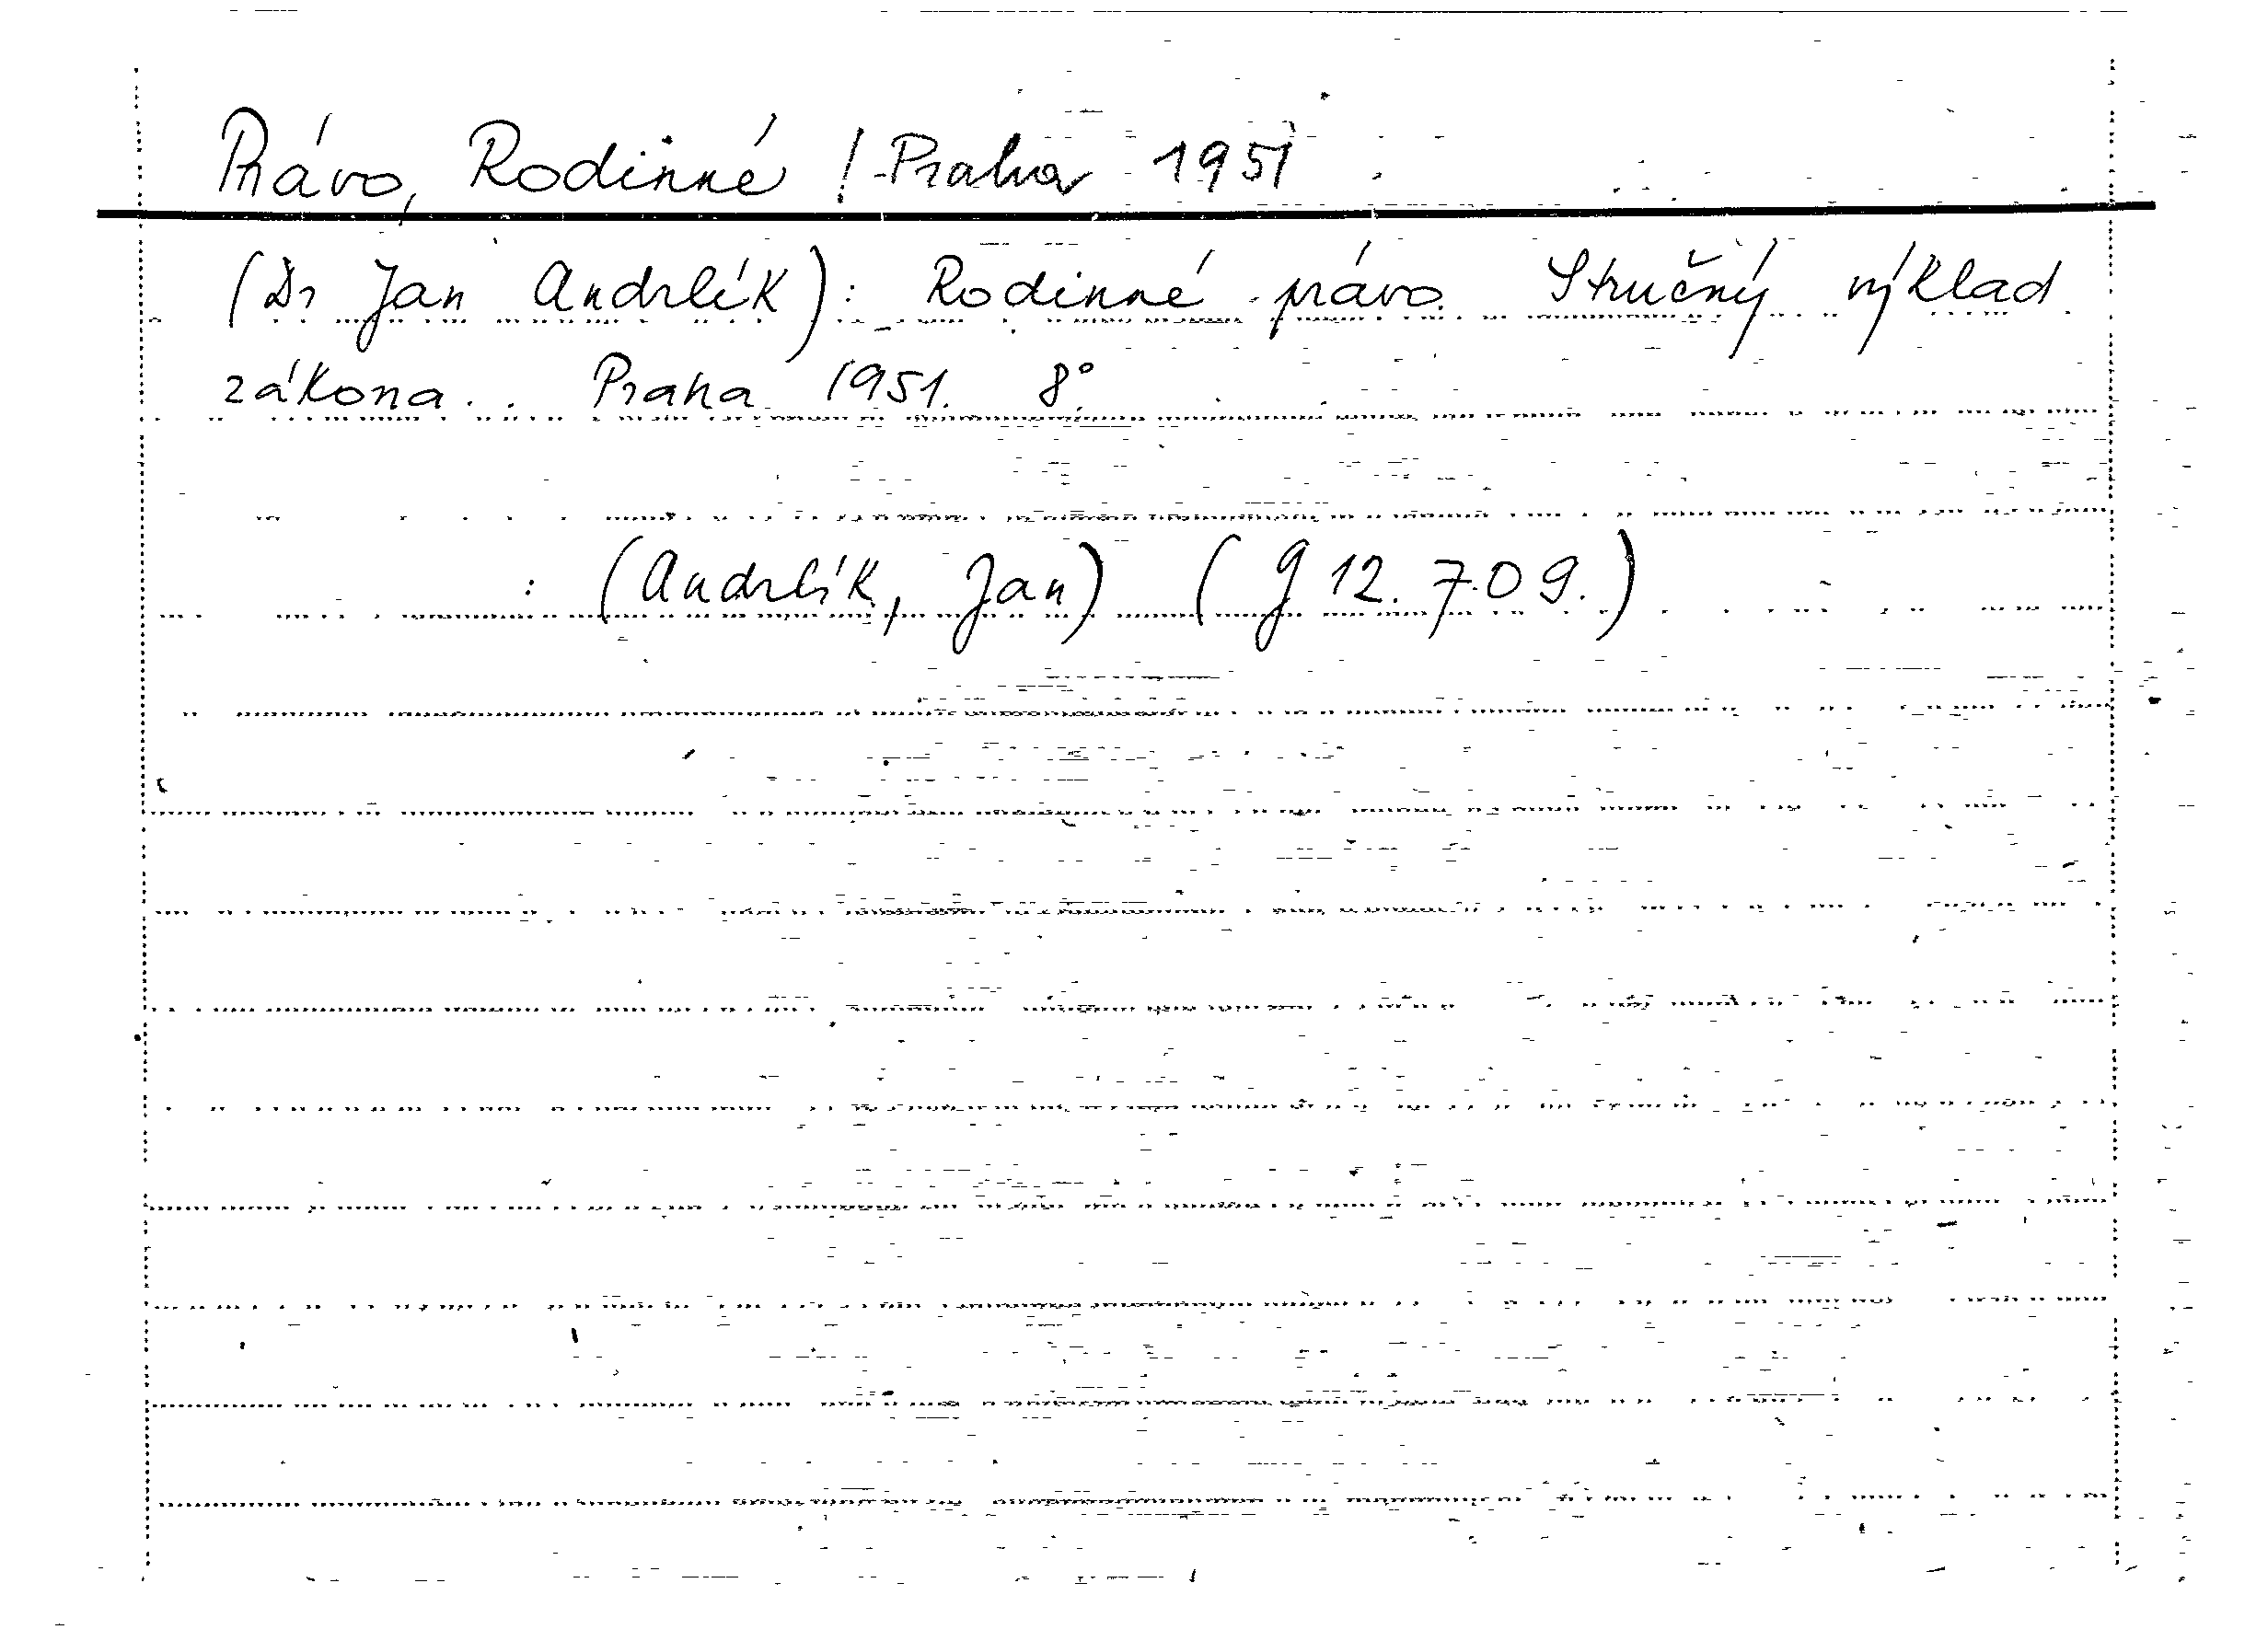 Právo, Rodinné / Praha 1951
(Dr Jan Andrlík): Rodinné právo. Stručný výklad
zákona. Praha 1951. 8°.
: (Andrlík, Jan) (g 12.709.)